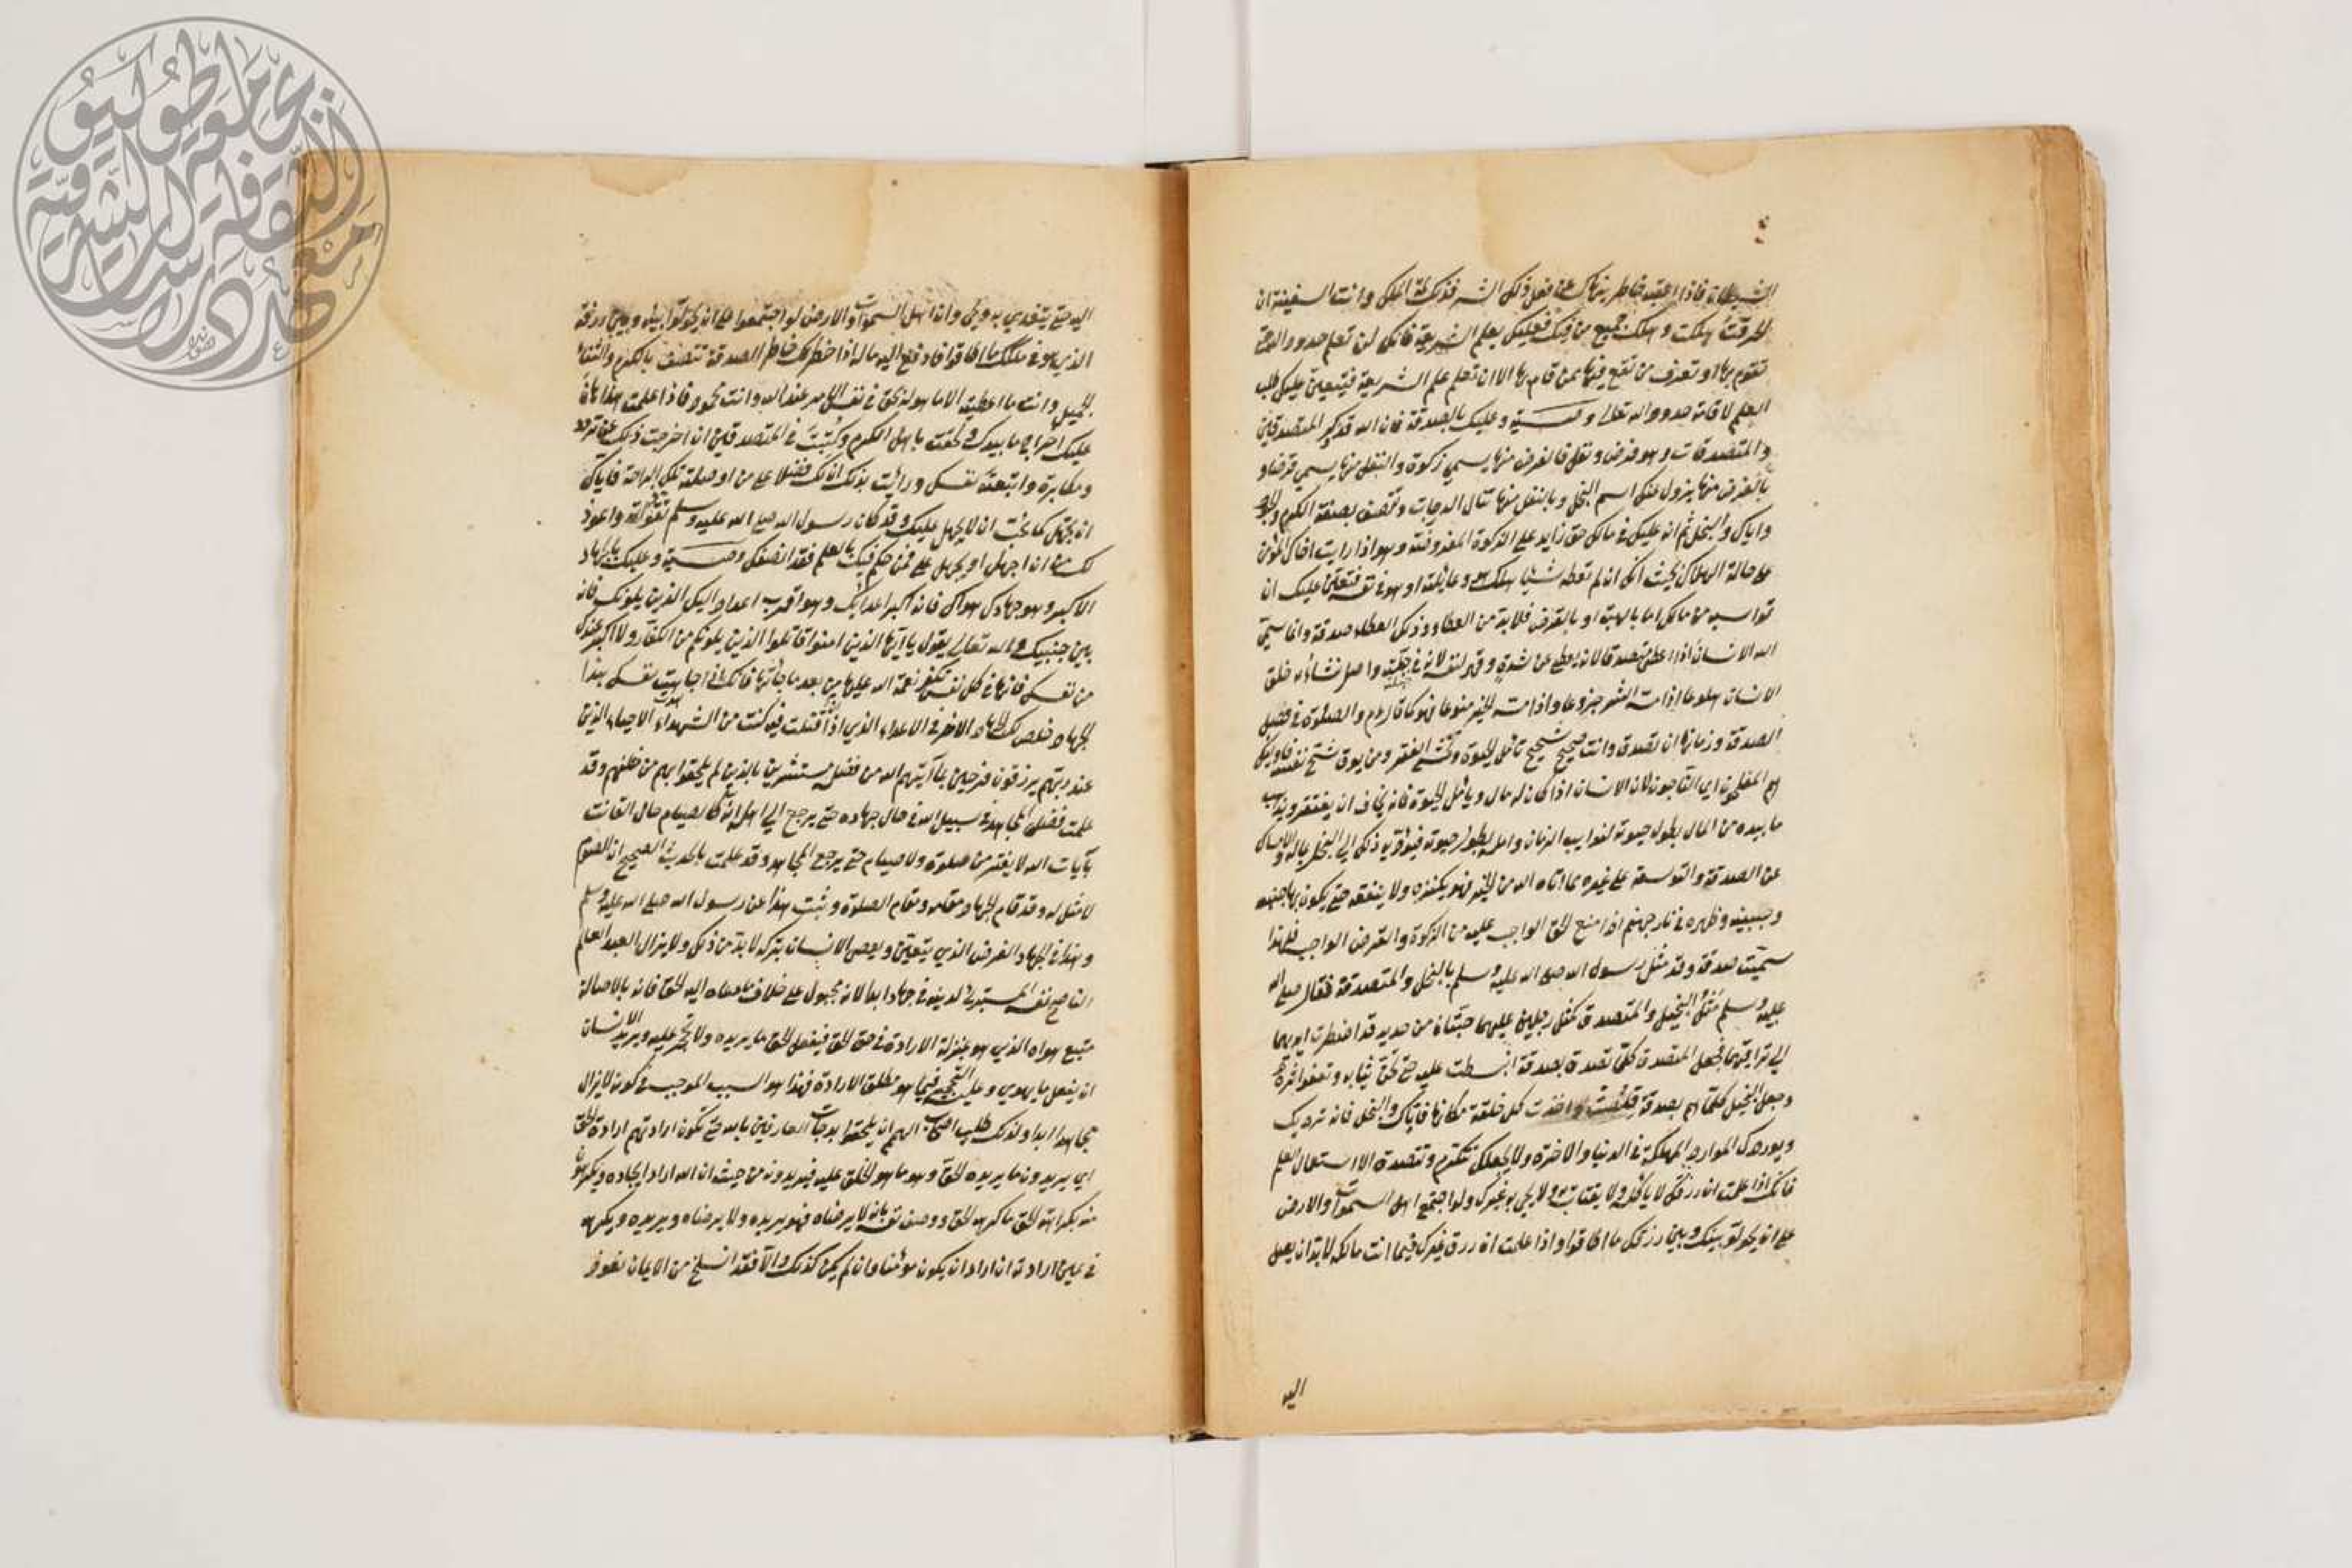 الشيطان فاذا اعقبه خاطر ينهاك عن فعل ذلك الشر فذلك لمة الملك وانت السفينة ان
خرقت هلكت وهلك جميع من فيك فعليك بعلم الشريعة فانك لن تعلم حدود الله حتى
تقوم بها او تعرف من تقع فيها ممن قام بها الا ان تعلم علم الشريعة فيتعين عليك طلب
العلم لاقامة حدود الله تعالى وصية وعليك بالصدقة فان الله قد ذكر المتصدقين
والمتصدقات وهو فرض ونفل فالفرض منها يسمى زكوة والنفل منها يسمى قرضا و
بالفرض منها يزول عنك اسم البخل وبالنفل منها تنال الدرجات وتتصف بصفة الكرم والجود
واياك والبخل ثم ان عليك في مالك حق زايد على الزكوة المفروضة وهو اذا رايت اخاك المؤمن
على حالة الهلاك بحيث انك ان لم تعطه شيئا هلك هو وعائلته او هو في نفسه فتعين عليك ان
تواسيه من مالك اما بالهبة او بالقرض فلا بد من العطاء وذلك العطاء صدقة وانما سمى
الله الانسان اذا اعطى متصدقا لانه يعطى عن شدة وقهر لنفسه لانه في جبلته واصل نشأته خلق
الانسان هلوعا اذا مسه الشر جزوعا واذا مسه الخير منوعا فهو كما قال عم والصلوة في فضل
الصدقة وزمانها ان تصدق وانت صحيح شحيح تأمل الحيوة وتخشى الفقر ومن يوق شح نفسه فاولئك
هم المفلحون اي الناجون لان الانسان اذا كان له مال ويأمل الحيوة فانه يخاف ان يفتقر ويذهب
ما بيده من المال بطول حيوته لنوايب الزمان وامله بطول حيوته فيؤديه ذلك الى البخل بماله والامساك
عن الصدقة والتوسعة على غيره مما اتاه الله من الخير فهو يكنزه ولا ينفقه حتى يكوى بها جنبه
وجبينه وظهره في نار جهنم اذا منع الحق الواجب عليه من الزكوة والقرض الواجب فلهذا
سميت صدقة وقد مثل رسول الله صلى الله عليه وسلم بالبخل والمتصدقة فقال صلى الله
عليه وسلم مثل البخيل والمتصدق كمثل رجلين عليهما جبتان من حديد قد اضطرت ايديهما
الى تراقيهما فجعل المتصدق كلما تصدق بصدقة انبسطت عليه حتى تجن ثيابه وتعفو اثره
وجعل البخيل كلما هم بصدقة قلصت واخذت كل حلقة مكانها فاياك والبخل فانه يرديك
ويوردك الموارد المهلكة في الدنيا والاخرة ولا يجعلك تتكرم وتتصدق الا استعمال العلم
فانك اذا علمت ان رزقك لا ياكله ولا يقتات به ولا يحيى به غيرك ولو اجتمع اهل السموات والارض
على ان يحولوا بينك وبين رزقك ما اطاقوا واذا علمت ان رزق غيرك فيما انت مالكه لا بد ان يصل
اليه
اليه حتى يتغذى به ويحيى وان اهل السموات والارض لو اجتمعوا على ان يحولوا بينه وبين رزقه
الذي هو في ملكك ما اطاقوا فادفع اليه ماله اذا خطر لك خاطر الصدقة تتصف بالكرم والثناء
الجميل وانت ما اعطيته الا ما هو له بحق في نفس الامر عند الله وانت محمود فاذا علمت هذا هان
عليك اخراج ما بيدك ولحقت باهل الكرم وكتبت في المتصدقين ان اخرجت ذلك عن تردد
ومكابرة واتبعته نفسك ورايت بذلك ان لك فضلا على من اوصلته تلك الراحة فاياك
ان تجهل كما تحب ان لا يجهل عليك وقد كان رسول الله صلى الله عليه وسلم يقول في تعوذه واعوذ
بك من ان اجهل او يجهل على فمن حكم فيك بالعلم فقد انصفك وصية وعليك بالجهاد
الاكبر وهو جهادك هواك فانه اكبر اعدائك وهو اقرب اعداء اليك الذين يلونك فانه
بين جنبيك والله تعالى يقول يا ايها الذين امنوا قاتلوا الذين يلونكم من الكفار ولا اكبر عندك
من نفسك فانها في كل نفس تكفر نعمة الله عليها من بعد ما جاتها فانك اذا جاهدت نفسك بهذا
الجهاد خلص لك الجهاد الاخر في الاعداء الذي اذا قتلت فيه كنت من الشهداء الاحياء الذين
عند ربهم يرزقون فرحين بما آتيهم الله من فضله ويستبشرون بالذين لم يلحقوا بهم من خلفهم وقد
علمت فضل المجاهد في سبيل الله في حال جهاده حتى يرجع الى اهله انه كالصيام حال القانت
بآيات الله لا يفتر من صلوة ولا صيام حتى يرجع المجاهد وقد علمت بالحديث الصحيح ان الصوم
لا مثل له وقد قام الجهاد مقامه ومقام الصلوة وثبت هذا عن رسول الله صلى الله عليه وسلم
وهذا في الجهاد الفرض الذي يتعين ويعصى الانسان بتركه لا بد من ذلك ولا يزال العبد العالم
الناصح نفسه المستبرئ لدينه في جهاد ابدا لانه مجبول على خلاف ما دعاه اليه الحق فانه بالاصالة
متبع هواه الذي هو بمنزلة الارادة في حق الحق فيفعل الحق ما يريده ولا تحجير عليه ويريد الانسان
ان يفعل ما يهوى وعليه التحجير فيما هو مطلق الارادة فهذا هو السبب الموجب في كونه لا يزال
مجاهدا ابدا ولذلك طلب اصحاب الهمم ان يلحقوا بدرجات العارفين بالله حتى تكون ارادتهم ارادة الحق
اي يريدون ما يريده الحق وهو ما هو الخلق عليه فيريدونه من حيث ان الله اراد ايجاده ويكرهون
منه بكراهة الحق ما كرهه الحق ووصف نفسه بانه لا يرضاه فهو يريده ولا يرضاه ويريده ويكرهه
في عين ارادته ان اراد ان يكون مؤمنا وان لم يكن كذلك والا فقد انسلخ من الايمان نعوذ